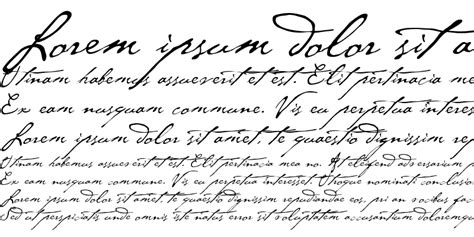 Lorem ipsum dolor sit a
Utinam habemus assueverit et est. Elit pertinacia me
Ex eam nusquam commune. Vis eu perpetua interes
Lorem ipsum dolor sit amet, te quaestio dignissim rep
Utinam habemus assueverit et est. Elit pertinacia mea no. At eleifend adversarium
Ex eam nusquam commune. Vis eu perpetua interesset. Utroque nominati conclusion
Lorem ipsum dolor sit amet, te quaestio dignissim repudiandae eos, pri an
Sed ut perspiciatis unde omnis iste natus error sit voluptatem accusantium doloremque